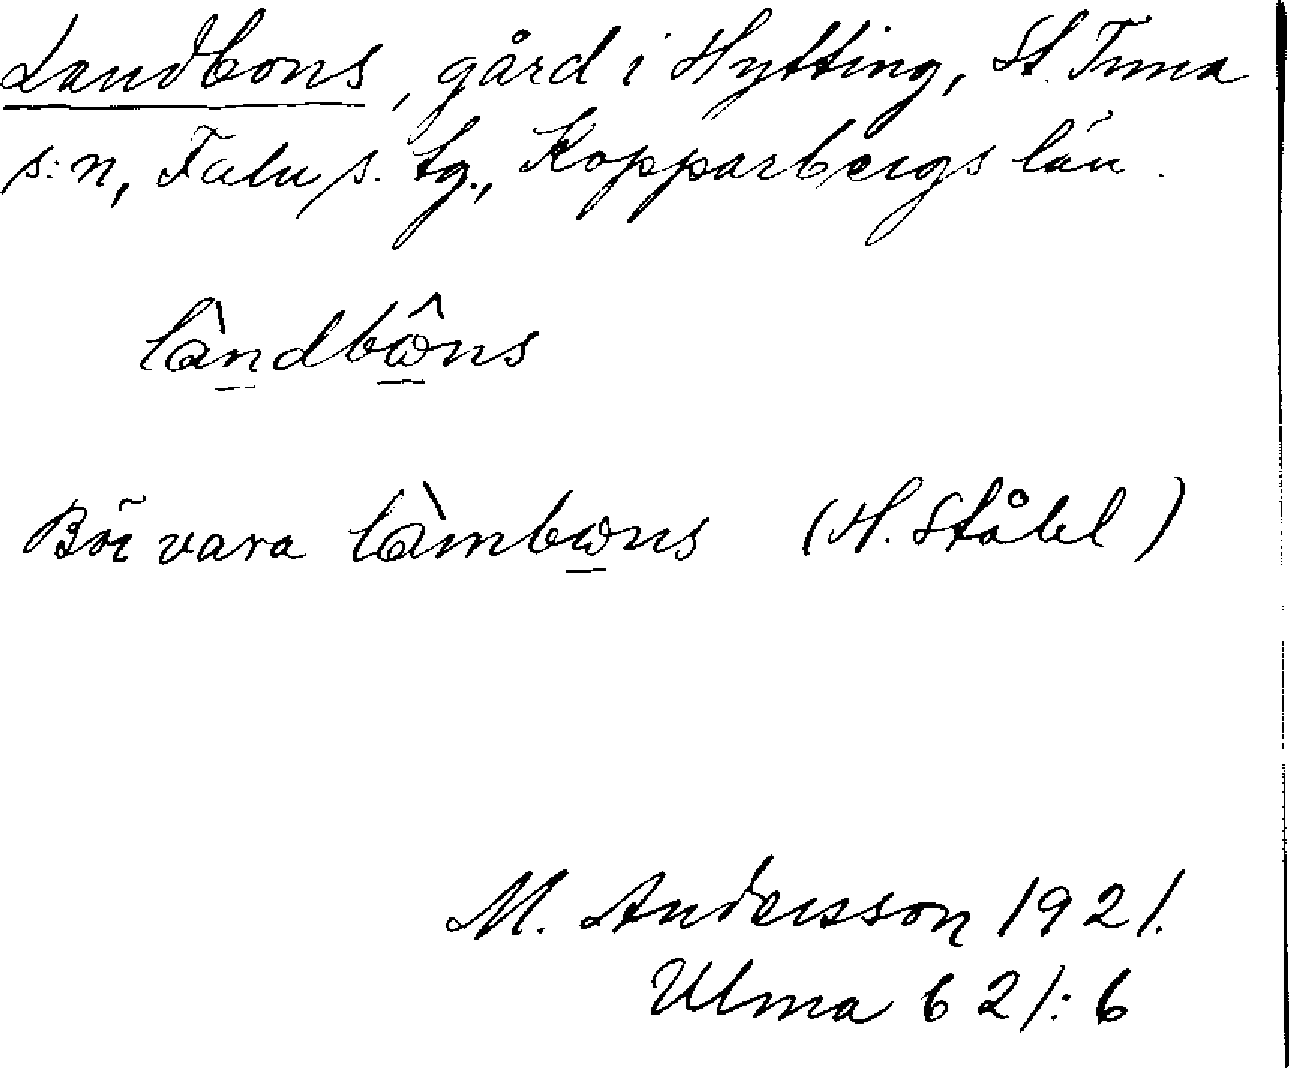 Landbons, gård i Hytting, St. Tuna
s:n, Falu s. tg., Kopparbergs län.
làndbω̂ns
Bör vara làmbωns (H. Ståhl)
M. Andersson 1921.
Ulma 621:6